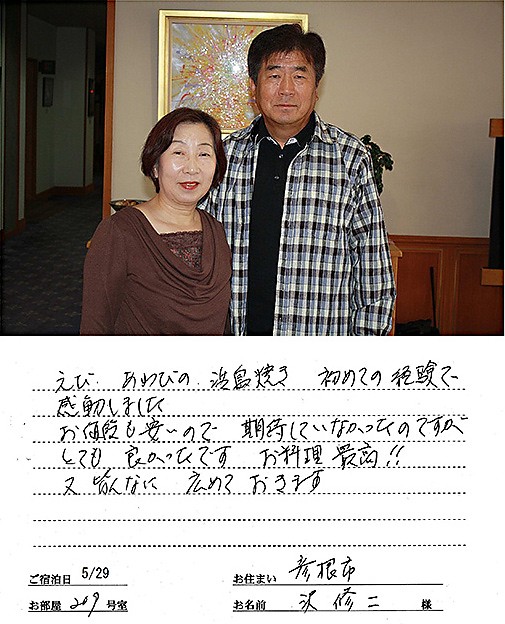 えび あわびの 浜島焼き 初めての 経験で
感動しました
お値段も安いので 期待していなかったのですが
とても 良かったです お料理 最高!!
又 皆んなに 広めて おきます
ご宿泊日 5/29 お住まい 彦根市
お部屋 209 号室 お名前 沢 修二 様